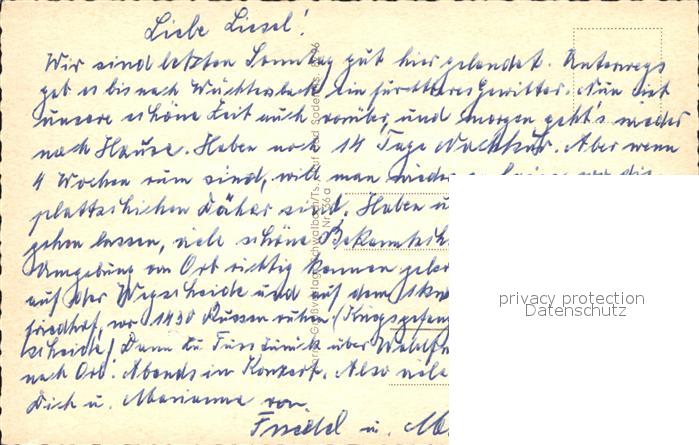 Liebe Liesel!
Wir sind letzten Sonntag gut hier gelandet. Unterwegs
gab es bis nach Wächtersbach ein furchtbares Gewitter. Nun ist
unsere schöne Zeit auch vorüber, und morgen geht's wieder
nach Hause. Haben noch 14 Tage Nachkur. Aber wenn
4 Wochen rum sind, will man wieder
sind. Haben
gehen lassen, viele schöne
Umgebung von Orb richtig kennen
auf der Wegscheide und auf dem
friedhof, wo 1430 Russen ruhen (Kriegsgefan
scheide) Dann zu Fuss zurück über
nach Orb. Abends in Konzert. Also viele
Dich u. Marianne von
Friedel u.
privacy protection
Datenschutz